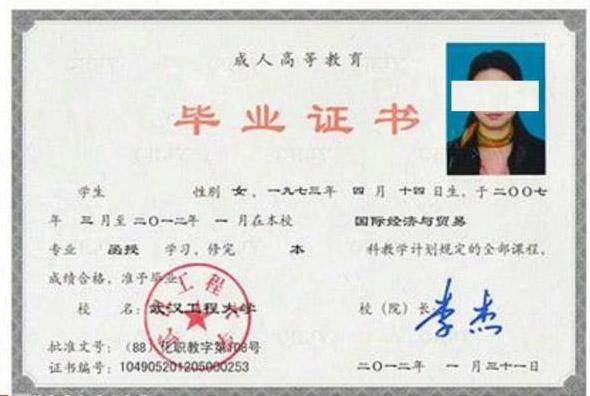 成人高等教育
毕业证书
学生 性别 女，一九七三年 四 月 十四日生，于二〇〇七
年 三 月至二〇一二年 一 月在本校 国际经济与贸易
专业 函授 学习，修完 本 科教学计划规定的全部课程，
成绩合格，准予毕业
校 名：武汉工程大学 校（院）长 李杰
批准文号：（88）化职教字第108号
证书编号：104905201205000253 二〇一二年 一 月 三十一日